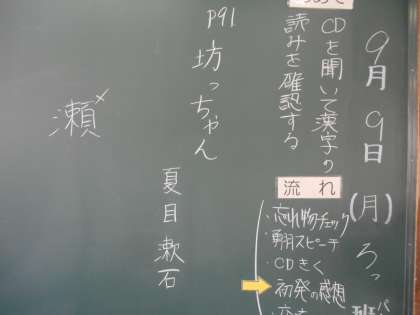 9月9日(月)ろっ
班
CDを聞いて漢字の
読みを確認する
流れ
・忘れ物チェック
・朝スピーチ
・CDきく
初発の感想
p91
坊っちゃん
夏目漱石
瀬